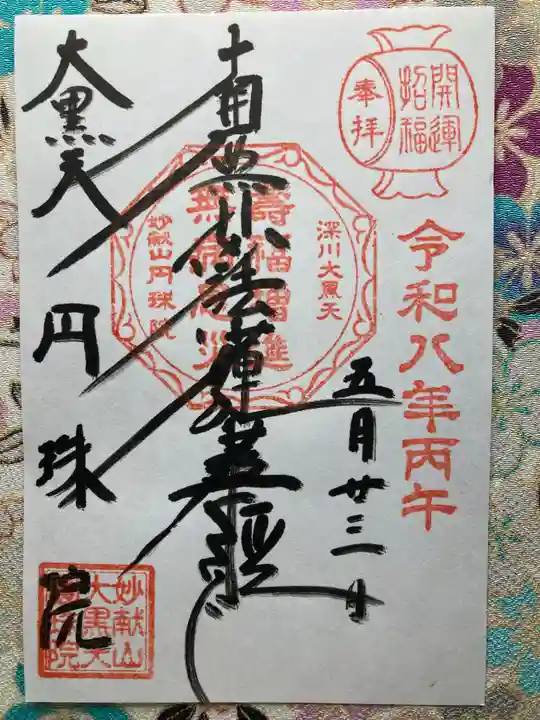 開運
招福
奉拝
令和八年丙午
五月廿三日
深川大黒天
壽福増進
無病息災
妙献山円珠院
南無妙法蓮華経
大黒天
円珠院
妙献山
大黒天
円珠院